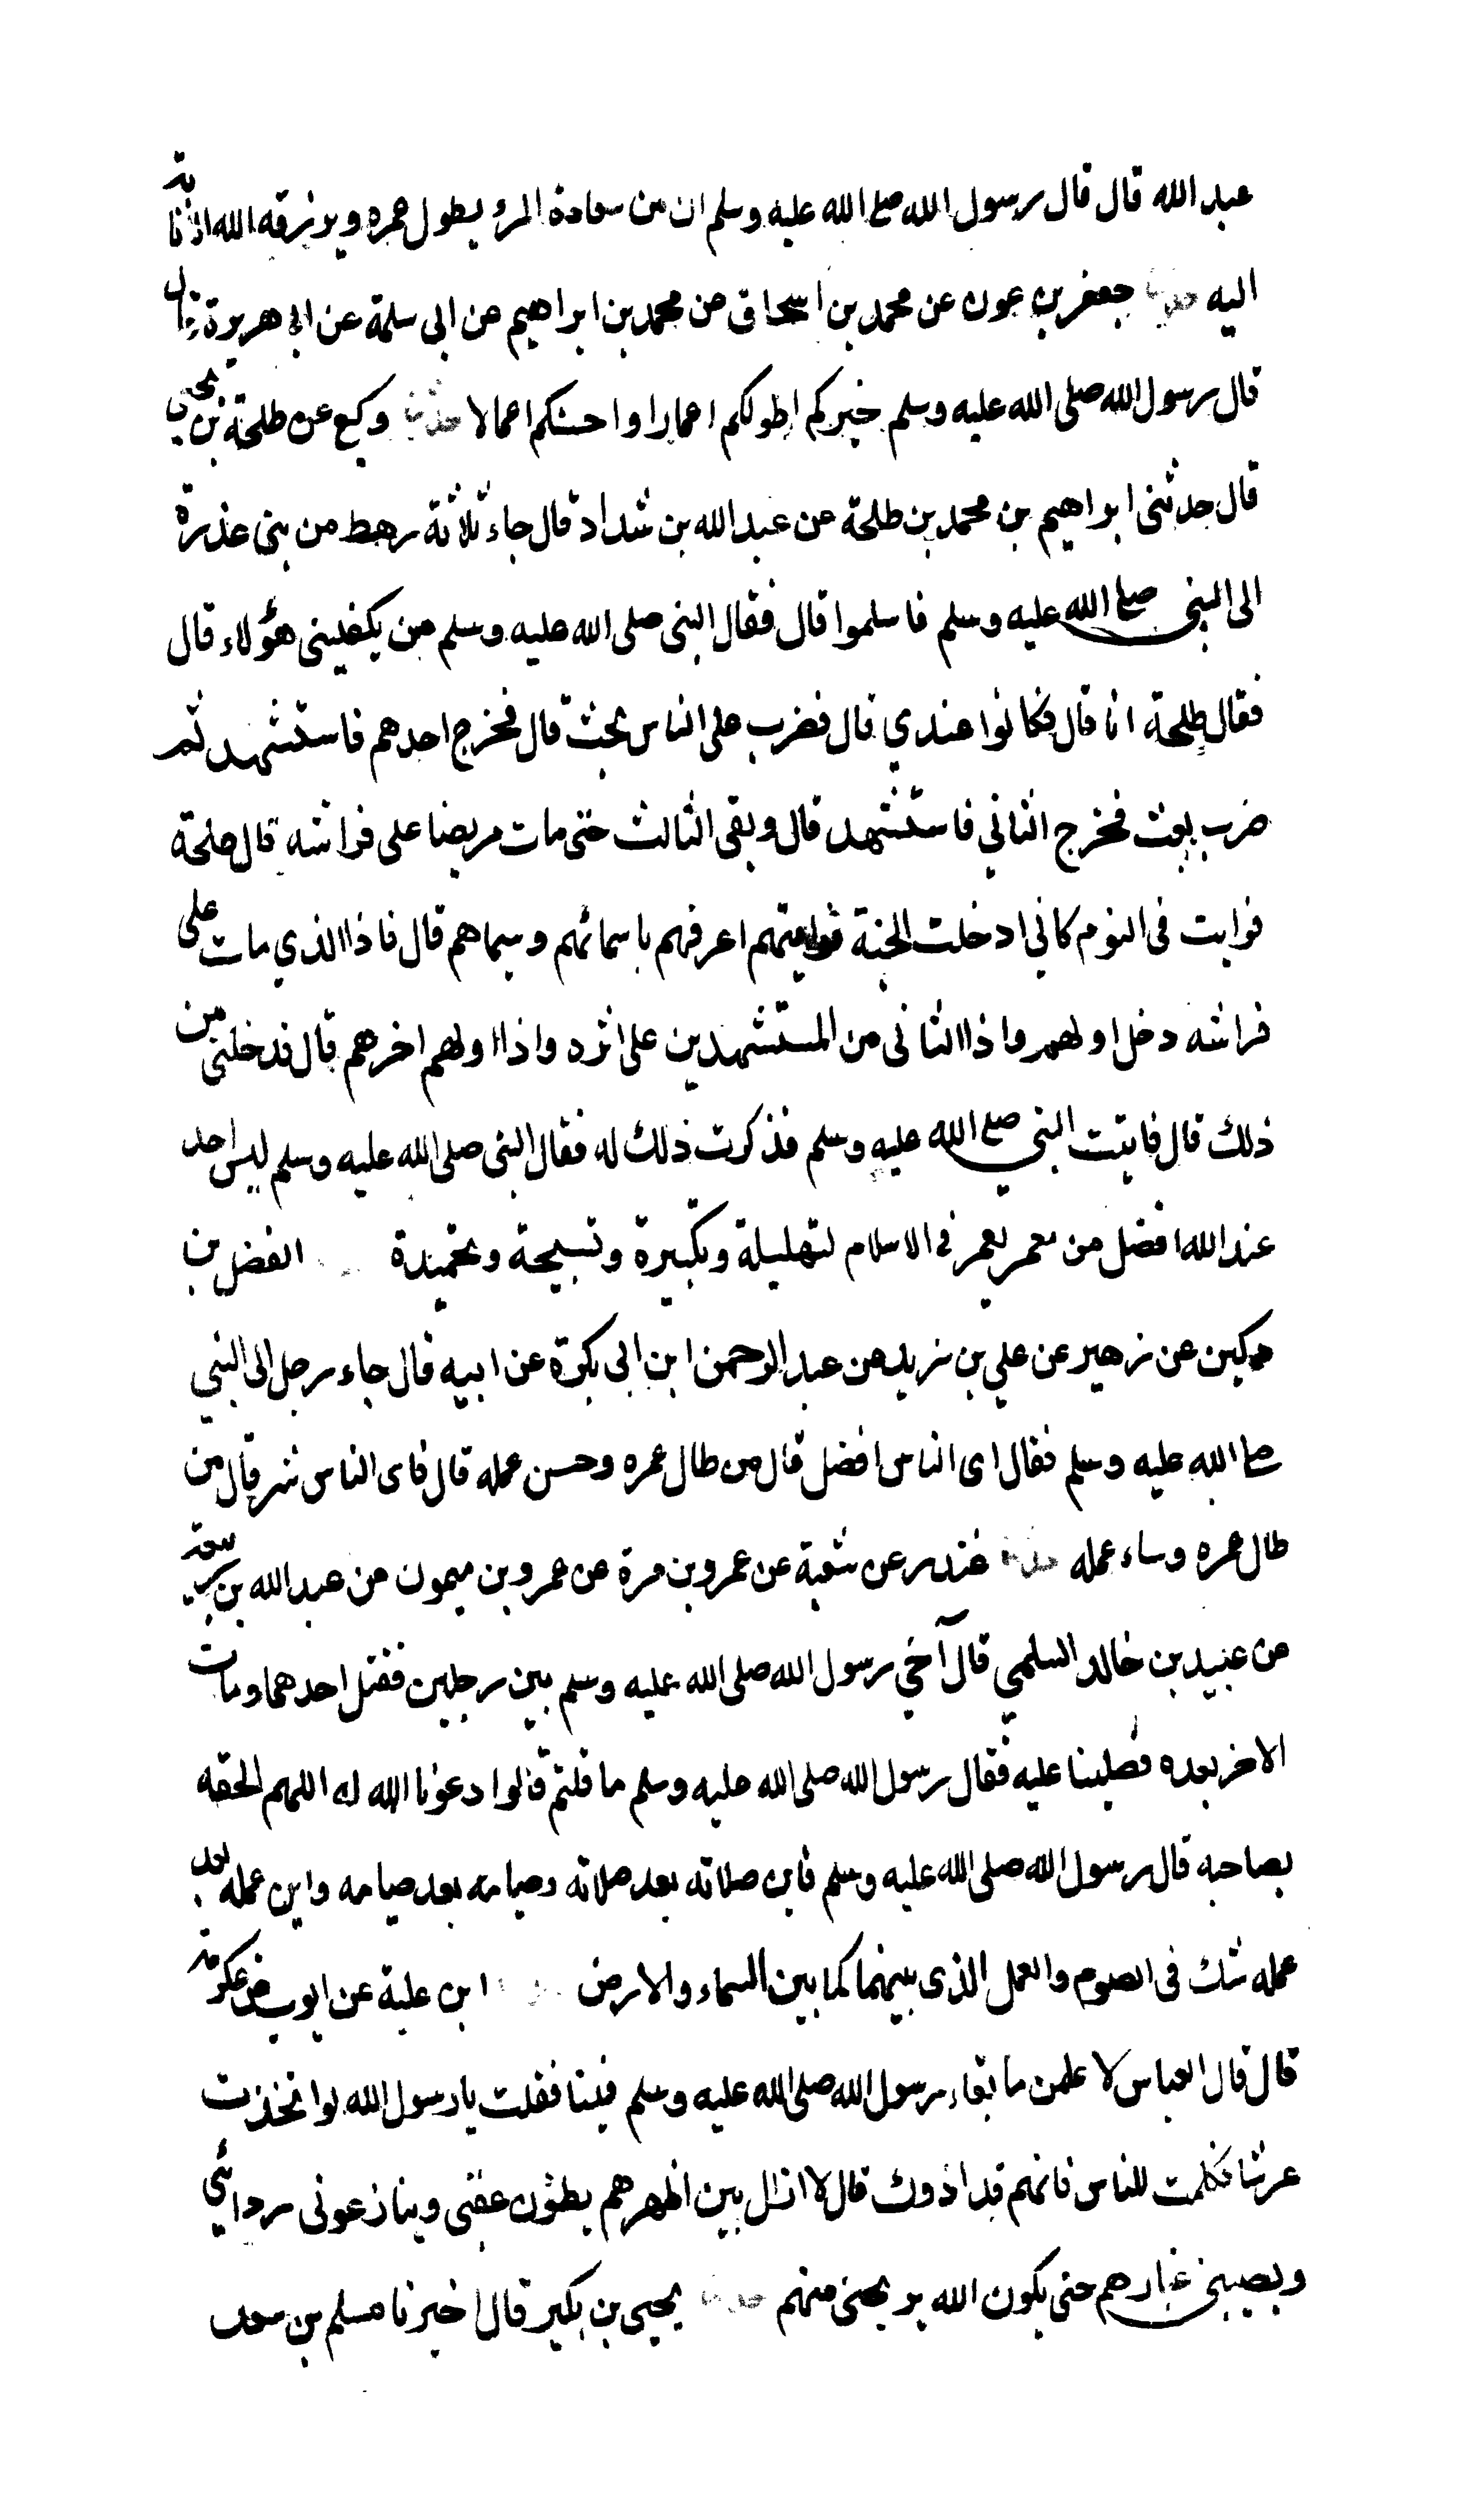 عبد الله قال قال رسول الله صلع الله عليه وسلم ان من سعادة المرء يطول عمره ويرزقه الله الانابة
اليه حدثنا جعفر بن عون عن محمد بن اسحاق عن محمد بن ابراهيم عن ابى سلمة عن ابى هريرة قال
قال رسول الله صلى الله عليه وسلم خيركم اطولكم اعمارا واحسنكم اعمالا حدثنا وكيع عن طلحة بن يحيى
قال حدثنى ابراهيم بن محمد بن طلحة عن عبد الله بن شداد قال جاء ثلاثة رهط من بنى عذرة
الى النبى صلع الله عليه وسلم فاسلموا قال فقال النبى صلى الله عليه وسلم من يكفينى هؤلاء قال
فقال طلحة انا قال فكانوا عندي قال فضرب على الناس بحث قال فخرج احدهم فاستشهد ثم
ضرب بعث فخرج الثاني فاستشهد قال وبقى الثالث حتى مات مريضا على فراشه قال طلحة
فرايت فى النوم كاني ادخلت الجنة فرايتهم اعرفهم باسمائهم وسيماهم قال فاذا الذي مات على
فراشه دخل اولهم واذا الثانى من المستشهدين على اثره واذا اولهم اخرهم قال فدخلنى من
ذلك قال فاتيت النبى صلع الله عليه وسلم فذكرت ذلك له فقال النبى صلى الله عليه وسلم ليس احد
عند الله افضل من معمر يعمر فى الاسلام لتهليلة وتكبيرة وتسبيحة وتحميدة الفضل بن
دكين عن زهير عن علي بن زيد عن عبد الرحمن ابن ابى بكرة عن ابيه قال جاء رجل الى النبي
صلع الله عليه وسلم فقال اى الناس افضل قال من طال عمره وحسن عمله قال فاى الناس شر قال من
طال عمره وساء عمله حدثنا غندر عن شعبة عن عمرو بن مرة عن عمرو بن ميمون عن عبد الله بن ربيعة
عن عبيد بن خالد السلمي قال آخي رسول الله صلى الله عليه وسلم بين رجلين فقتل احدهما ومات
الاخر بعده فصلينا عليه فقال رسول الله صلى الله عليه وسلم ما قلتم قالوا دعونا الله له اللهم الحقه
بصاحبه قال رسول الله صلى الله عليه وسلم فاين صلاته بعد صلاته وصيامه بعد صيامه واين عمله بعد
عمله شك فى الصوم والعمل الذى بينهما كما بين السماء والارض ابن علية عن ايوب عن عكرمة
قال قال العباس لاعلمن ما بقاء رسول الله صلى الله عليه وسلم فينا فقلت يا رسول الله لو اتخذت
عرشا فكلمت للناس فانهم قد اذوك قال لا ازال بين اظهرهم يطئون عقبى وينازعونى ردائي
ويصيبنى غبارهم حتى يكون الله يريحنى منهم حدثنا يحيى بن بكير قال اخبرنا مسلم بن سعد